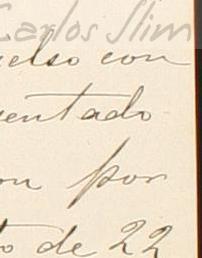 Carlos Slim
elso con
entado
on por
to de 22